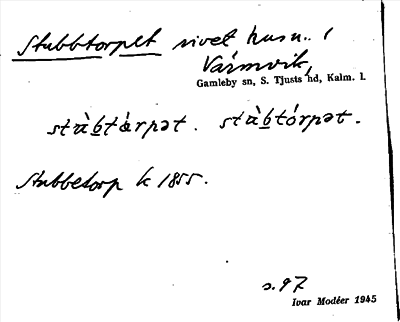 Stubbtorpet rivet husn. i
Värmvik,
Gamleby sn, S. Tjusts hd, Kalm. l.
stùb̲tårpət. stùb̲tórpət.
Stubbetorp k 1855.
s. 97
Ivar Modéer 1945